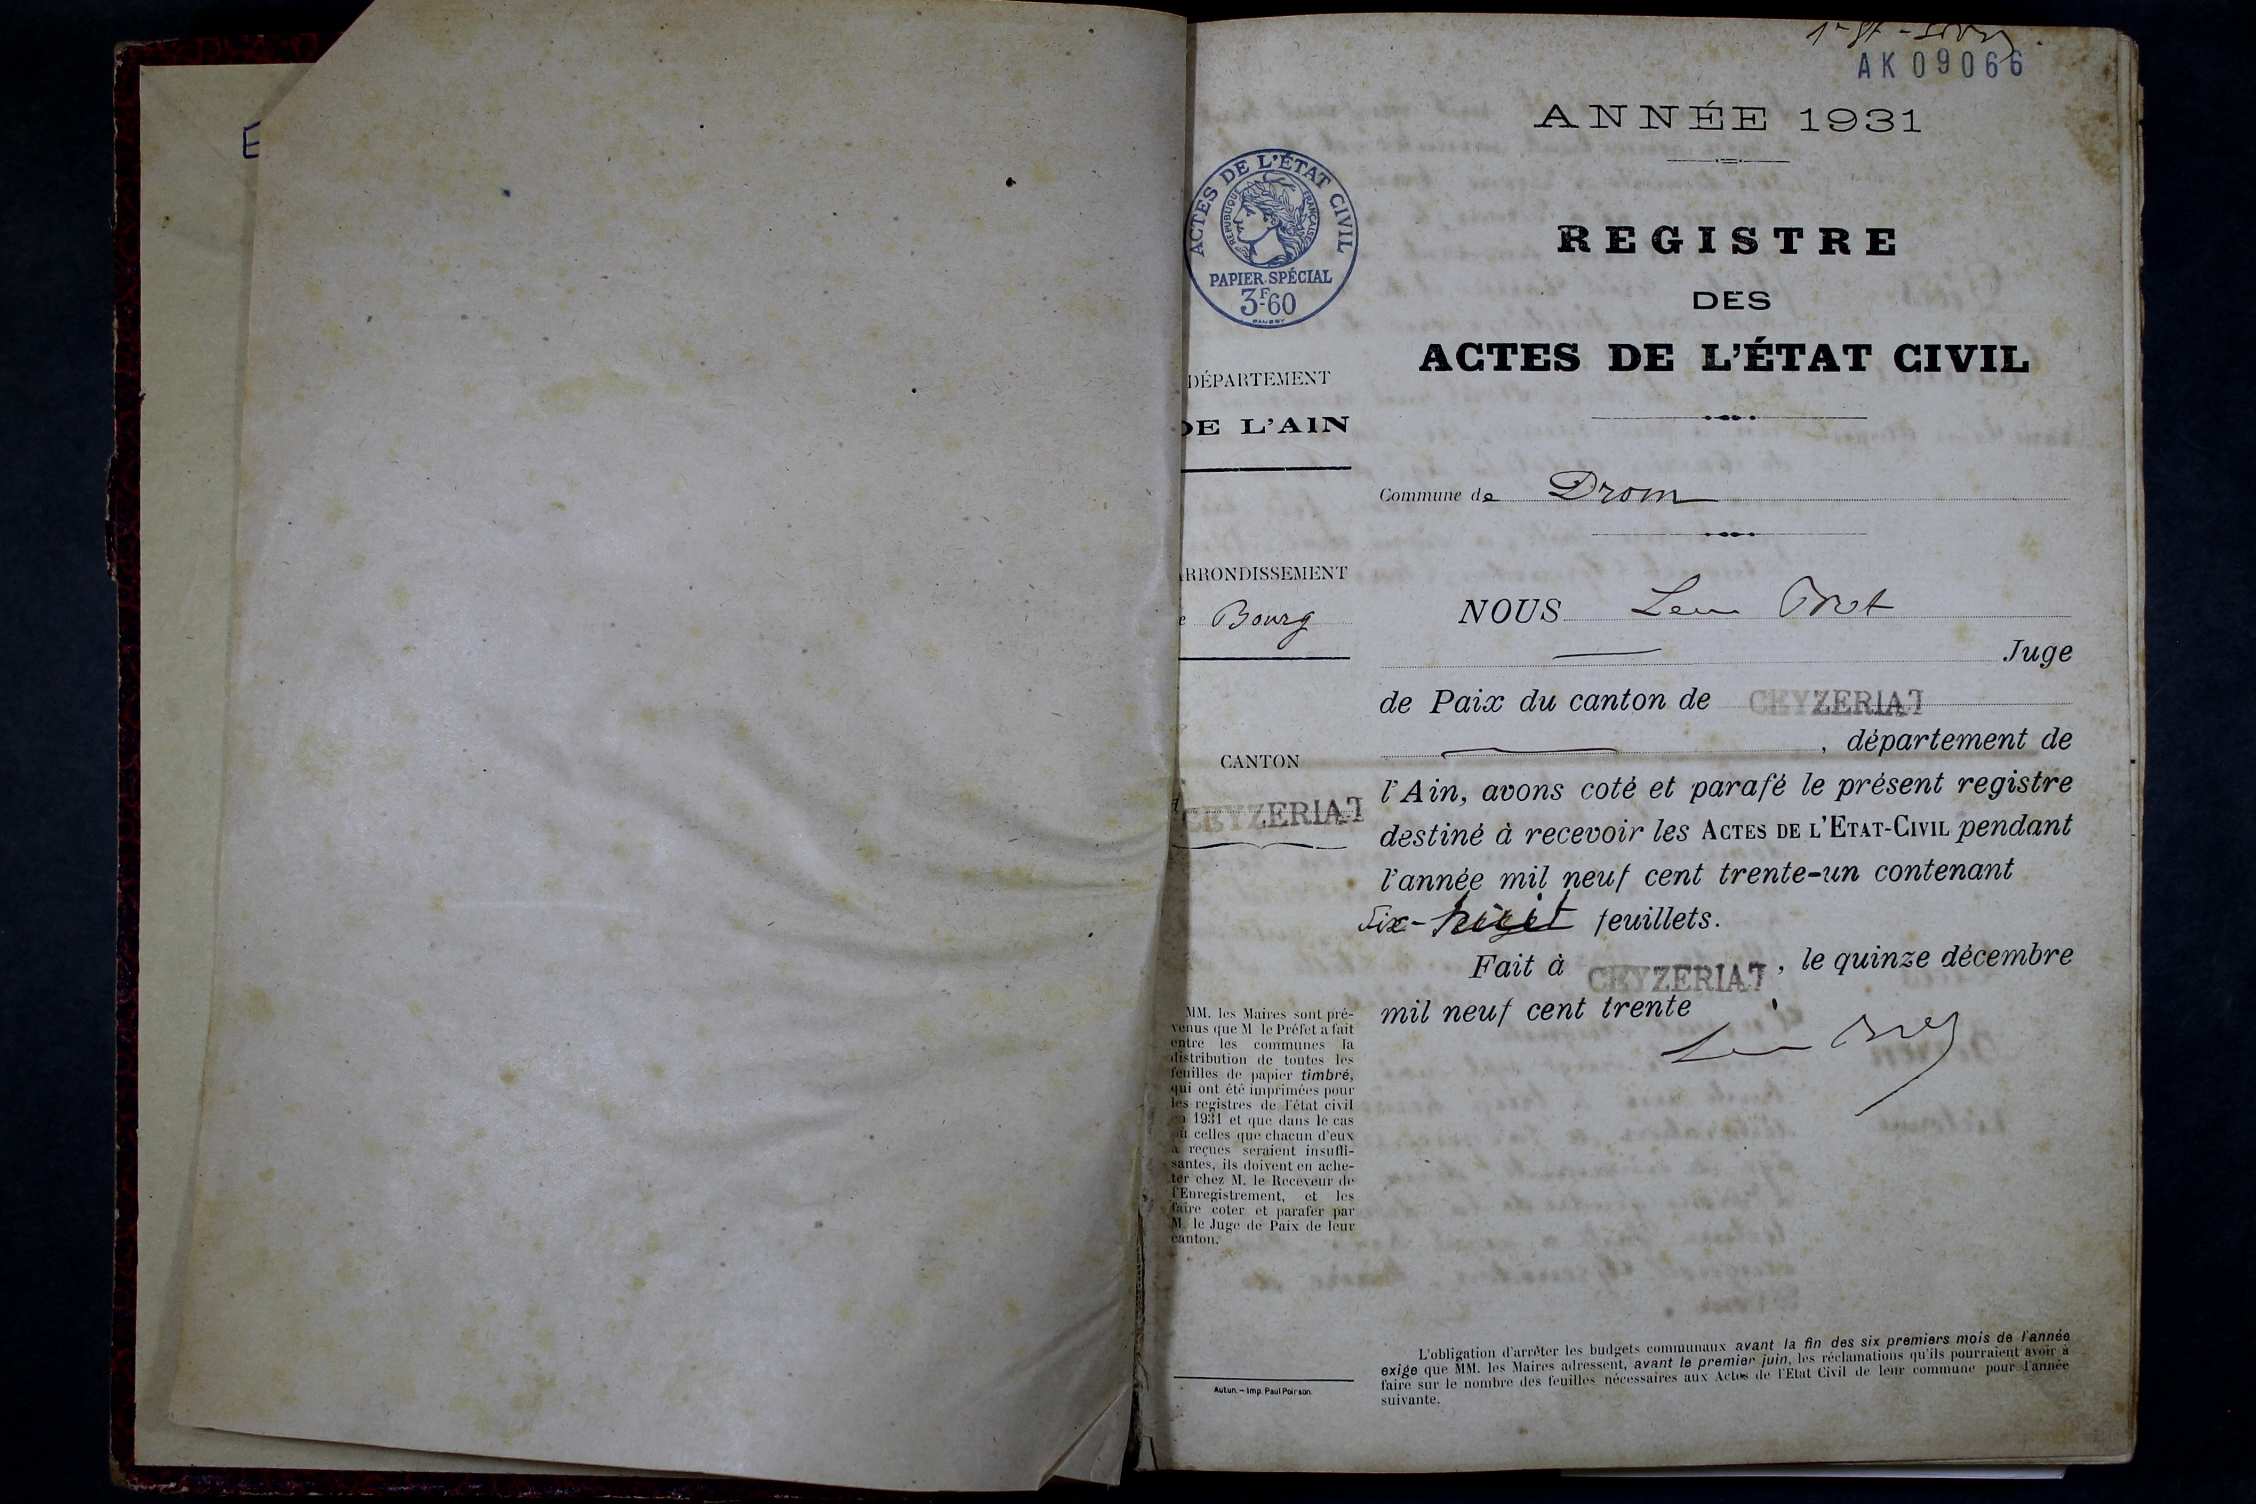 E
AK 09066
ANNÉE 1931
ACTES DE L'ÉTAT CIVIL
RÉPUBLIQUE FRANÇAISE
PAPIER SPÉCIAL
3F60
REGISTRE
DES
ACTES DE L'ÉTAT CIVIL
DÉPARTEMENT
DE L'AIN
Commune de Drom
ARRONDISSEMENT
e Bourg
NOUS
Juge
de Paix du canton de CEYZERIAT
, département de
CANTON
CEYZERIAT
l'Ain, avons coté et parafé le présent registre
destiné à recevoir les ACTES DE L'ETAT-CIVIL pendant
l'année mil neuf cent trente-un contenant
Six-huit feuillets.
Fait à CEYZERIAT, le quinze décembre
mil neuf cent trente
MM. les Maires sont pré-
venus que M le Préfet a fait
entre les communes la
distribution de toutes les
feuilles de papier timbré,
qui ont été imprimées pour
les registres de l'état civil
en 1931 et que dans le cas
où celles que chacun d'eux
a reçues seraient insuffi-
santes, ils doivent en ache-
ter chez M. le Receveur de
l'Enregistrement, et les
faire coter et parafer par
M. le Juge de Paix de leur
canton.
Autun. - Imp. Paul Poirson.
L'obligation d'arrêter les budgets communaux avant la fin des six premiers mois de l'année
exige que MM. les Maires adressent, avant le premier juin, les réclamations qu'ils pourraient avoir à
faire sur le nombre des feuilles nécessaires aux Actes de l'Etat Civil de leur commune pour l'année
suivante.